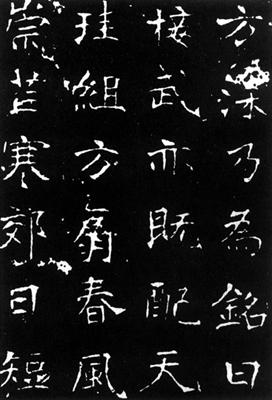 方沬乃為銘曰
接武亦既配天
珪組方春風
崇芒寒郊日短